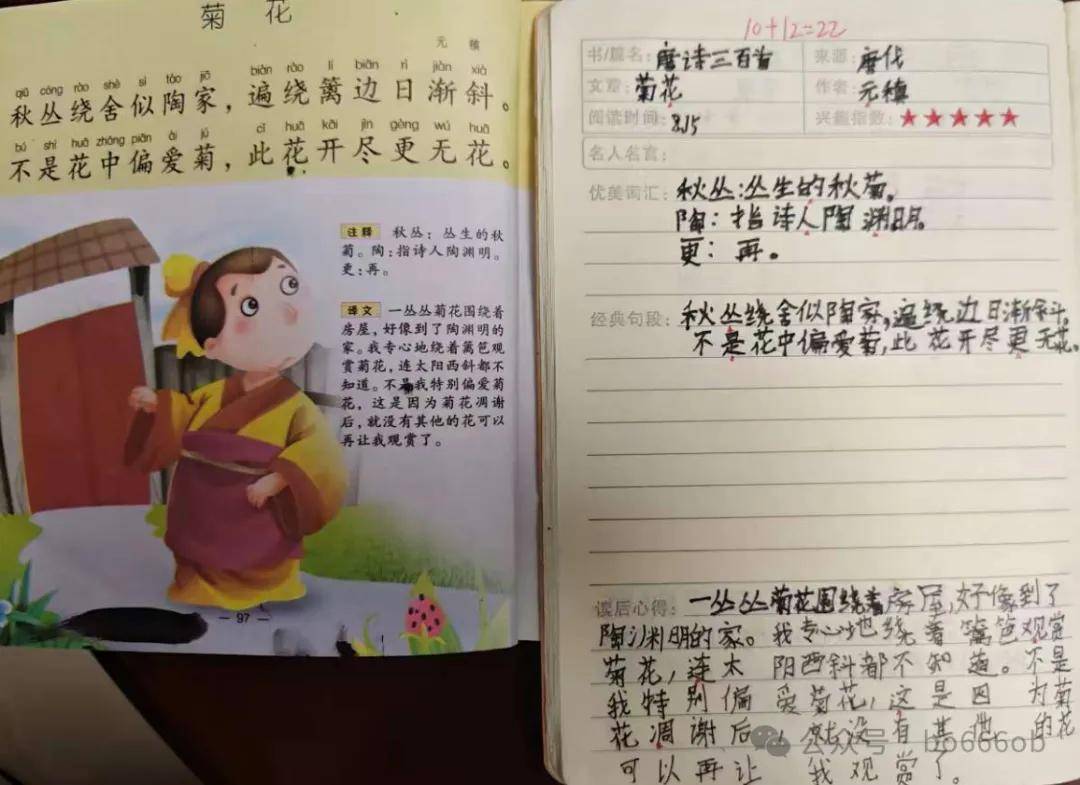 菊 花
元 稹
qiū cóng rào shè sì táo jiā biàn rào lí biān rì jiàn xié
秋丛绕舍似陶家，遍绕篱边日渐斜。
bú shì huā zhōng piān ài jú cǐ huā kāi jìn gèng wú huā
不是花中偏爱菊，此花开尽更无花。
注释 秋丛：丛生的秋
菊。陶：指诗人陶渊明。
更：再。
译文 一丛丛菊花围绕着
房屋，好像到了陶渊明的
家。我专心地绕着篱笆观
赏菊花，连太阳西斜都不
知道。不是我特别偏爱菊
花，这是因为菊花凋谢
后，就没有其他的花可以
再让我观赏了。
— 97 —
10+12=22
书/篇名：唐诗三百首 来源：唐代
文章：菊花 作者：元稹
阅读时间：8.15 兴趣指数：★★★★★
名人名言：
优美词汇：秋丛：丛生的秋菊。
陶：指诗人陶渊明。
更：再。
经典句段：秋丛绕舍似陶家，遍绕边日渐斜.
不是花中偏爱菊，此花开尽更无花。
读后心得：一丛丛菊花围绕着房屋，好像到了
陶渊明的家。我专心地绕着篱笆观赏
菊花，连太阳西斜都不知道。不是
我特别偏爱菊花，这是因为菊
花凋谢后，就没有其他的花
可以再让我观赏了。
公众号 · bo666ob